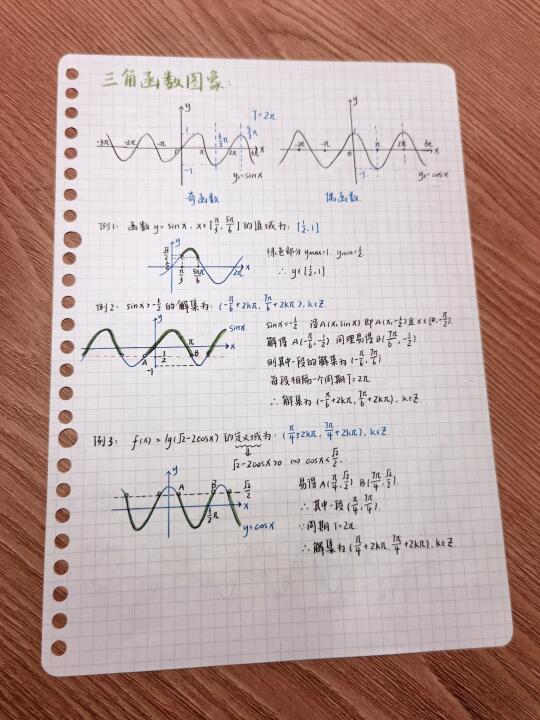 三角函数图象:
y
T=2π
1
-3π -2π -π 0 π 3/2π 2π 5/2π 3π x
-1
y₁=sinx
奇函数
y
1
-2π -π 0 π 2π 3π x
-1
y₂=cosx
偶函数
例1: 函数 y=sinx, x∈[π/3, 5π/6] 的值域为: [1/2, 1]
y
√3/2
1/2
π/3 5π/6 2π x
绿色部分 ymax=1, ymin=1/2.
∴ y∈[1/2, 1]
例2: sinx>-1/2 的解集为: (-π/6+2kπ, 7π/6+2kπ), k∈Z
y
sinx
π x
A -1/2 B
-1
sinx=-1/2 设A(x, sinx) 即A(x, -1/2) 且x∈(0, -π/2).
解得 A(-π/6, -1/2) 同理易得 B(7π/6, -1/2)
则其中一段的解集为 (-π/6, 7π/6)
每段相隔一个周期T=2π.
∴ 解集为 (-π/6+2kπ, 7π/6+2kπ), k∈Z.
例3: f(x)=lg(√2-2cosx) 的定义域为: (π/4+2kπ, 7π/4+2kπ), k∈Z.
⇓
√2-2cosx>0 ⟺ cosx<√2/2.
y
A B √2/2
3/2π x
y=cosx
易得 A(π/4, √2/2) B(7π/4, √2/2).
∴ 其中一段 (π/4, 7π/4).
∵ 周期T=2π.
∴ 解集为 (π/4+2kπ, 7π/4+2kπ), k∈Z